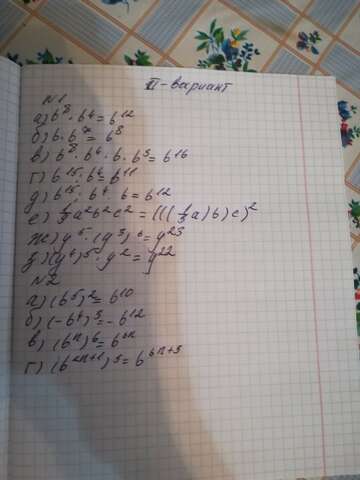 II-вариант
№1
а) b⁸ · b⁴ = b¹²
б) b · b⁷ = b⁸
в) b⁸ · b⁴ · b · b³ = b¹⁶
г) b¹⁵ : b⁴ = b¹¹
д) b¹⁵ : b⁴ · b = b¹²
е) 1/9 a²b²c² = (((1/3 a) b) c)²
ж) y⁵ · (y³)⁶ = y²³
з) (y⁴)⁵ · y² = y²²
№2
а) (b⁵)² = b¹⁰
б) (-b⁴)³ = -b¹²
в) (bⁿ)⁶ = b⁶ⁿ
г) (b²ⁿ⁺¹)³ = b⁶ⁿ⁺³